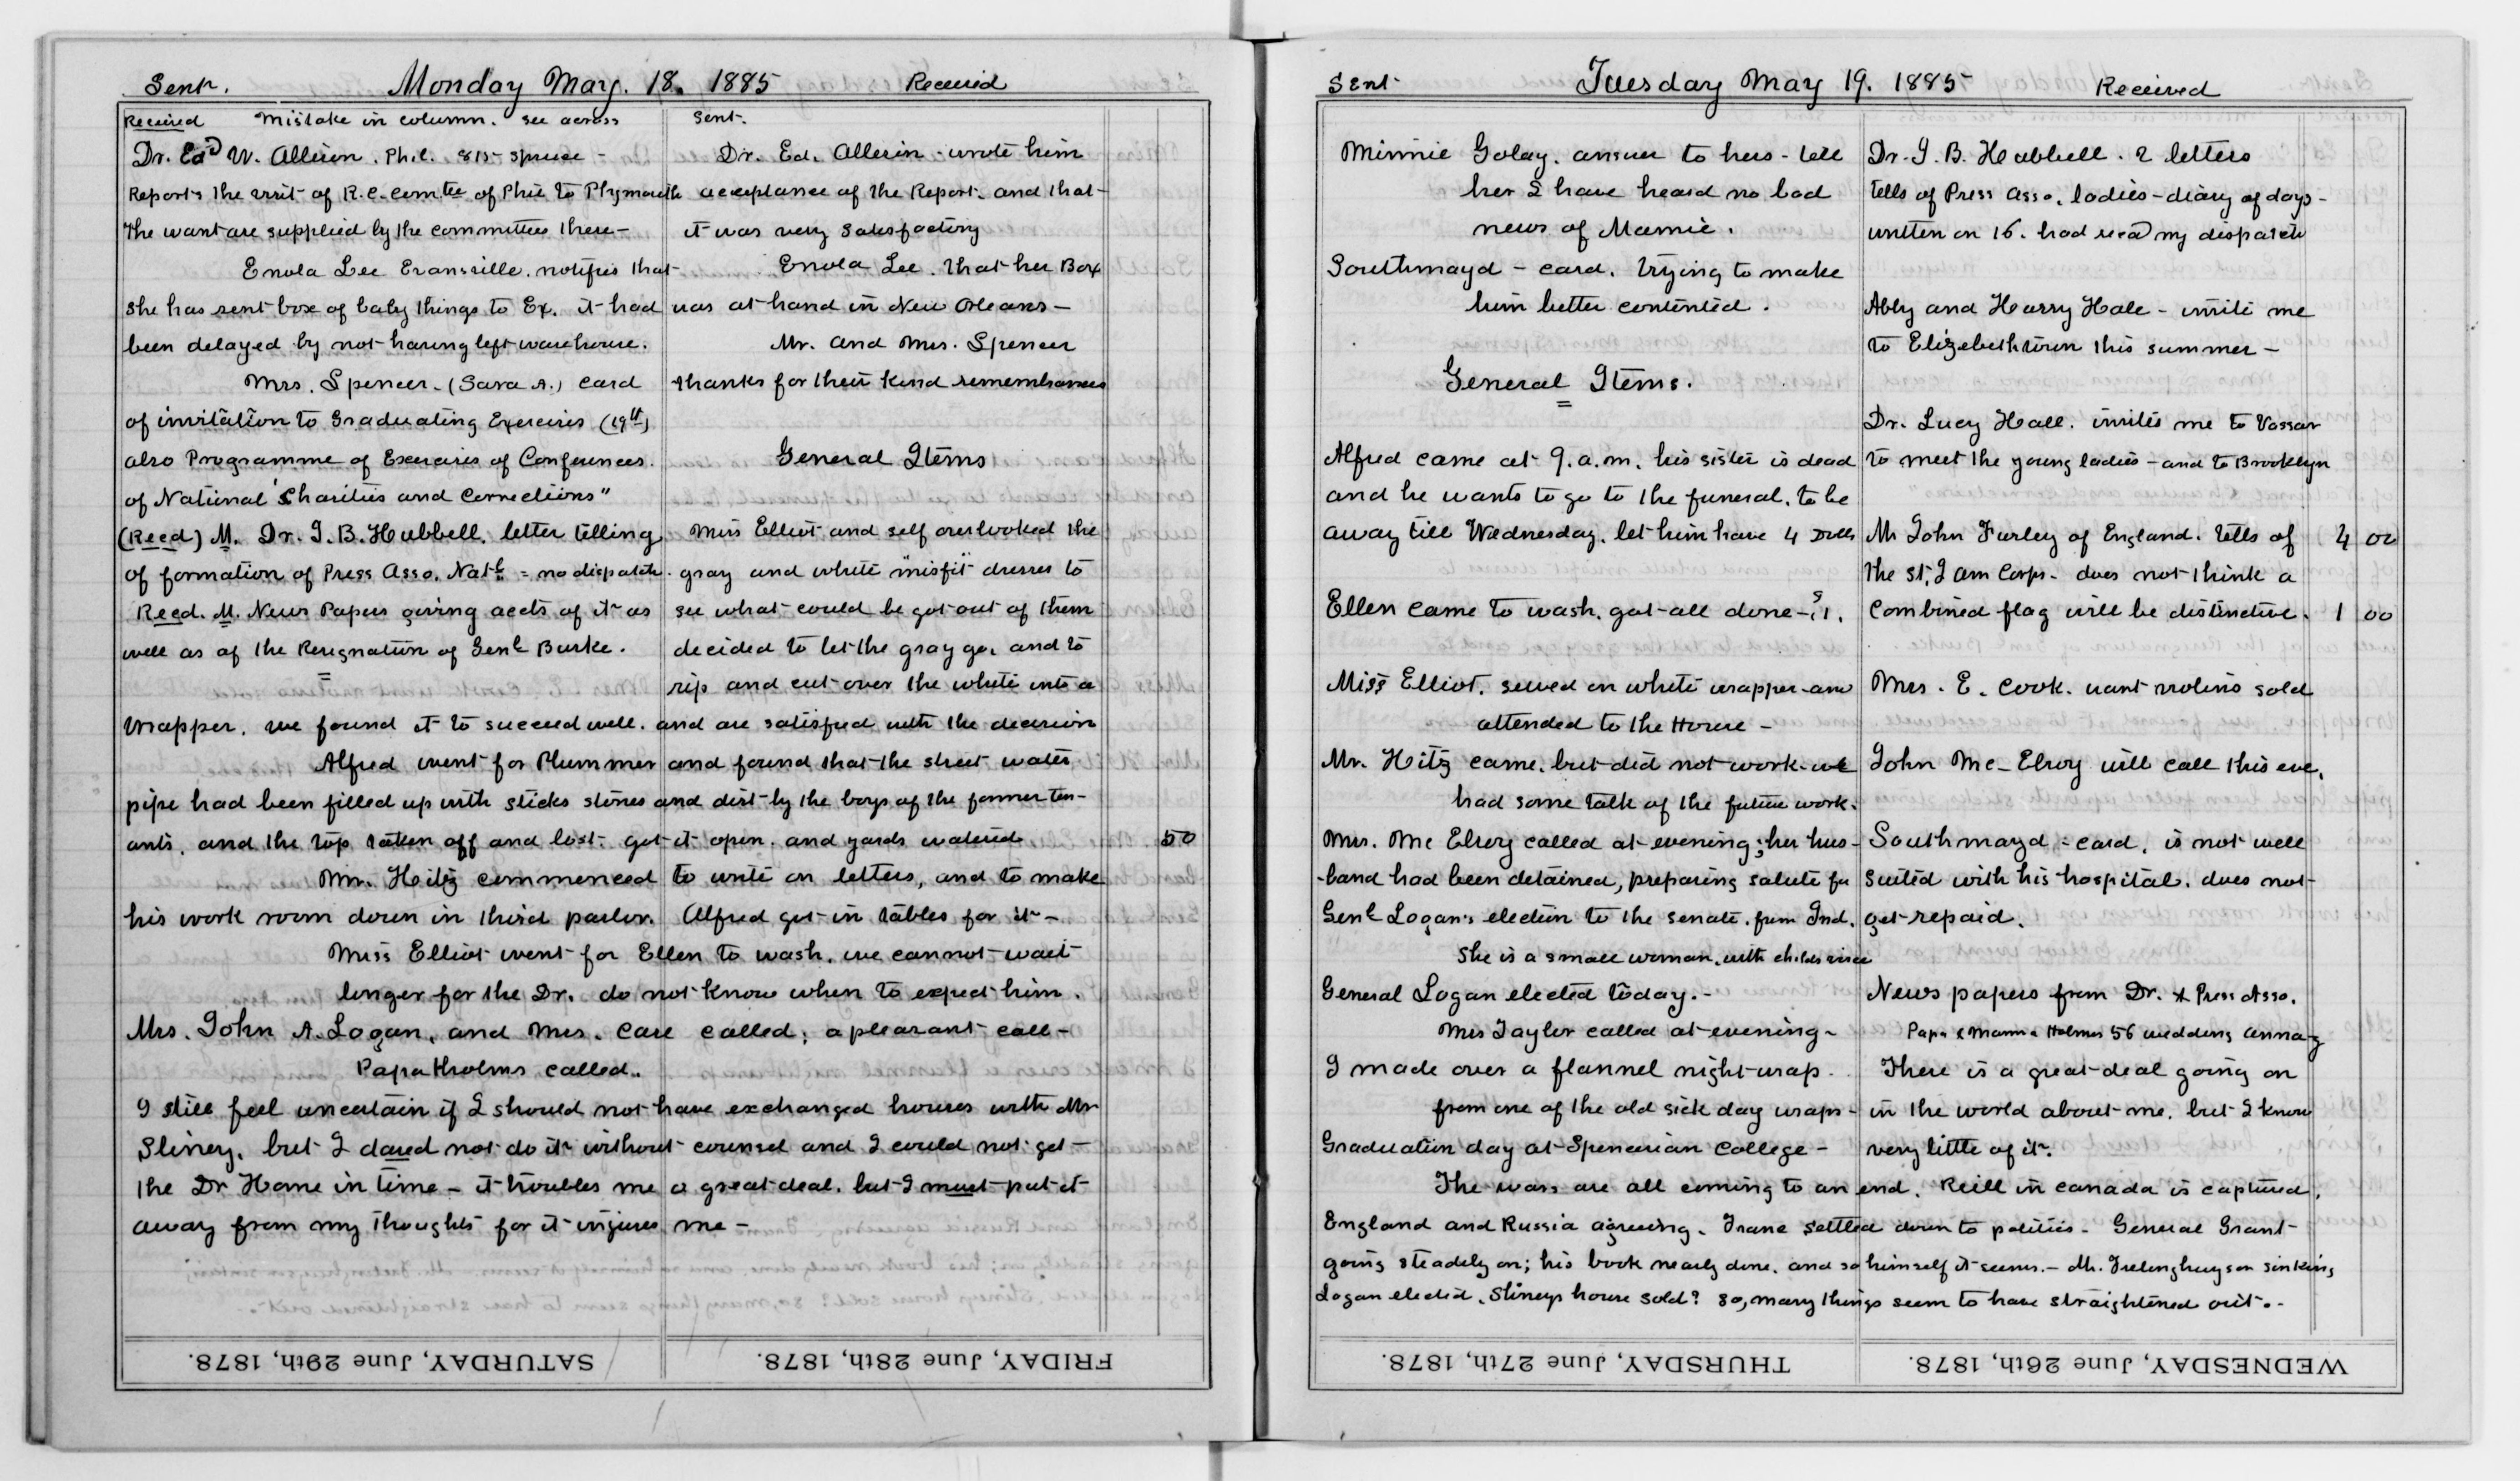 Sent. Monday May. 18. 1885 Received
Received Mistake in column. see across
Dr. Edd W. Allison. Phil. 815 Spruce -
Reports the visit of R.C. Comtee of Phil to Plymouth
The want are supplied by the committees there -
Enola Lee Evansville. notifies that
she has sent box of baby things to Ex. it had
been delayed by not having left warehouse.
Mrs. Spencer - (Sara A.) card
of invitation to Graduating Exercises (19th)
also Programme of Exercises of Conferences
of National "Charities and Corrections"
(Recd) M. Dr. J. B. Hubbell. letter telling
of formation of Press Asso. Natl = no dispatch.
Recd. M. News Papers giving accts of it as
well as of the Resignation of Genl Burke.
Sent.
Dr. Ed. Allison - wrote him
acceptance of the Report. and that
it was very satisfactory
Enola Lee. that her Box
was at hand in New Orleans -
Mr. and Mrs. Spencer
thanks for their kind remembrances
General Items
Miss Elliot and self overlooked the
gray and white "misfit" dresses to
see what could be got out of them
decided to let the gray go, and to
rip and cut over the white into a
wrapper. we found it to succeed well. and are satisfied with the decision
Alfred went for Plummer and found that the street water
pipe had been filled up with sticks stones and dirt by the boys of the former ten-
ants. and the top taken off and lost. got it open. and yards watered 50
Mr. Hitz commenced to write on letters, and to make
his work room down in third parlor. Alfred got in tables for it -
Miss Elliot went for Ellen to wash. we cannot wait
longer for the Dr. do not know when to expect him.
Mrs. John A. Logan, and Mrs. Care called; a pleasant call -
Papa Holmes called.
I still feel uncertain if I should not have exchanged houses with Mr
Sliney. but I dared not do it without counsel and I could not get
the Dr Home in time - it troubles me a great deal. but I must put it
away from my thoughts for it injures me -
SATURDAY, June 29th, 1878. FRIDAY, June 28th, 1878.
Sent Tuesday May 19. 1885 Received
Minnie Golay. answer to hers - tell
her I have heard no bad
news of Mamie.
Southmayd - card. trying to make
him better contented.
General Items.
Alfred came at 9. a.m. his sister is dead
and he wants to go to the funeral. to be
away till Wednesday. let him have 4 Dolls 4 00
Ellen came to wash. got all done - $1. 1 00
Miss Elliot. sewed on white wrapper and
attended to the House -
Mr. Hitz came. but did not work - we
had some talk of the future work.
Mrs. Mc Elroy called at evening; her hus-
-band had been detained, preparing salute for
Genl Logan's election to the senate. from Ind.
She is a small woman. with childs voice
General Logan elected today. -
Mrs Taylor called at evening -
I made over a flannel night wrap
from one of the old sick day wraps -
Graduation day at Spencerian College -
Dr. J. B. Hubbell. 2 letters
tells of Press Asso. ladies - diary of days -
written on 16. had recd my dispatch
Abby and Harry Hale - invite me
to Elizabethtown this summer -
Dr. Lucy Hall. invites me to Vassar
to meet the young ladies - and to Brooklyn
Mr John Furley of England. tells of
the St. J Am Corps - does not think a
combined flag will be distinctive.
Mrs. E. Cook. want violins sold
John Mc-Elroy will call this eve.
Southmayd = card. is not well
suited with his hospital. does not
get repaid.
News papers from Dr. & Press Asso.
Papa & Mamma Holmes 56 wedding annay
There is a great deal going on
in the world about me. but I know
very little of it.
The wars are all coming to an end. Reill in Canada is captured.
England and Russia agreeing. Frane settled down to politics - General Grant
going steadily on; his book nearly done. and so himself it seems. - Mr. Frelinghuyson sinking
Logan elected. Slineys house sold? So, many things seem to have straightened out. -
THURSDAY, June 27th, 1878. WEDNESDAY, June 26th, 1878.